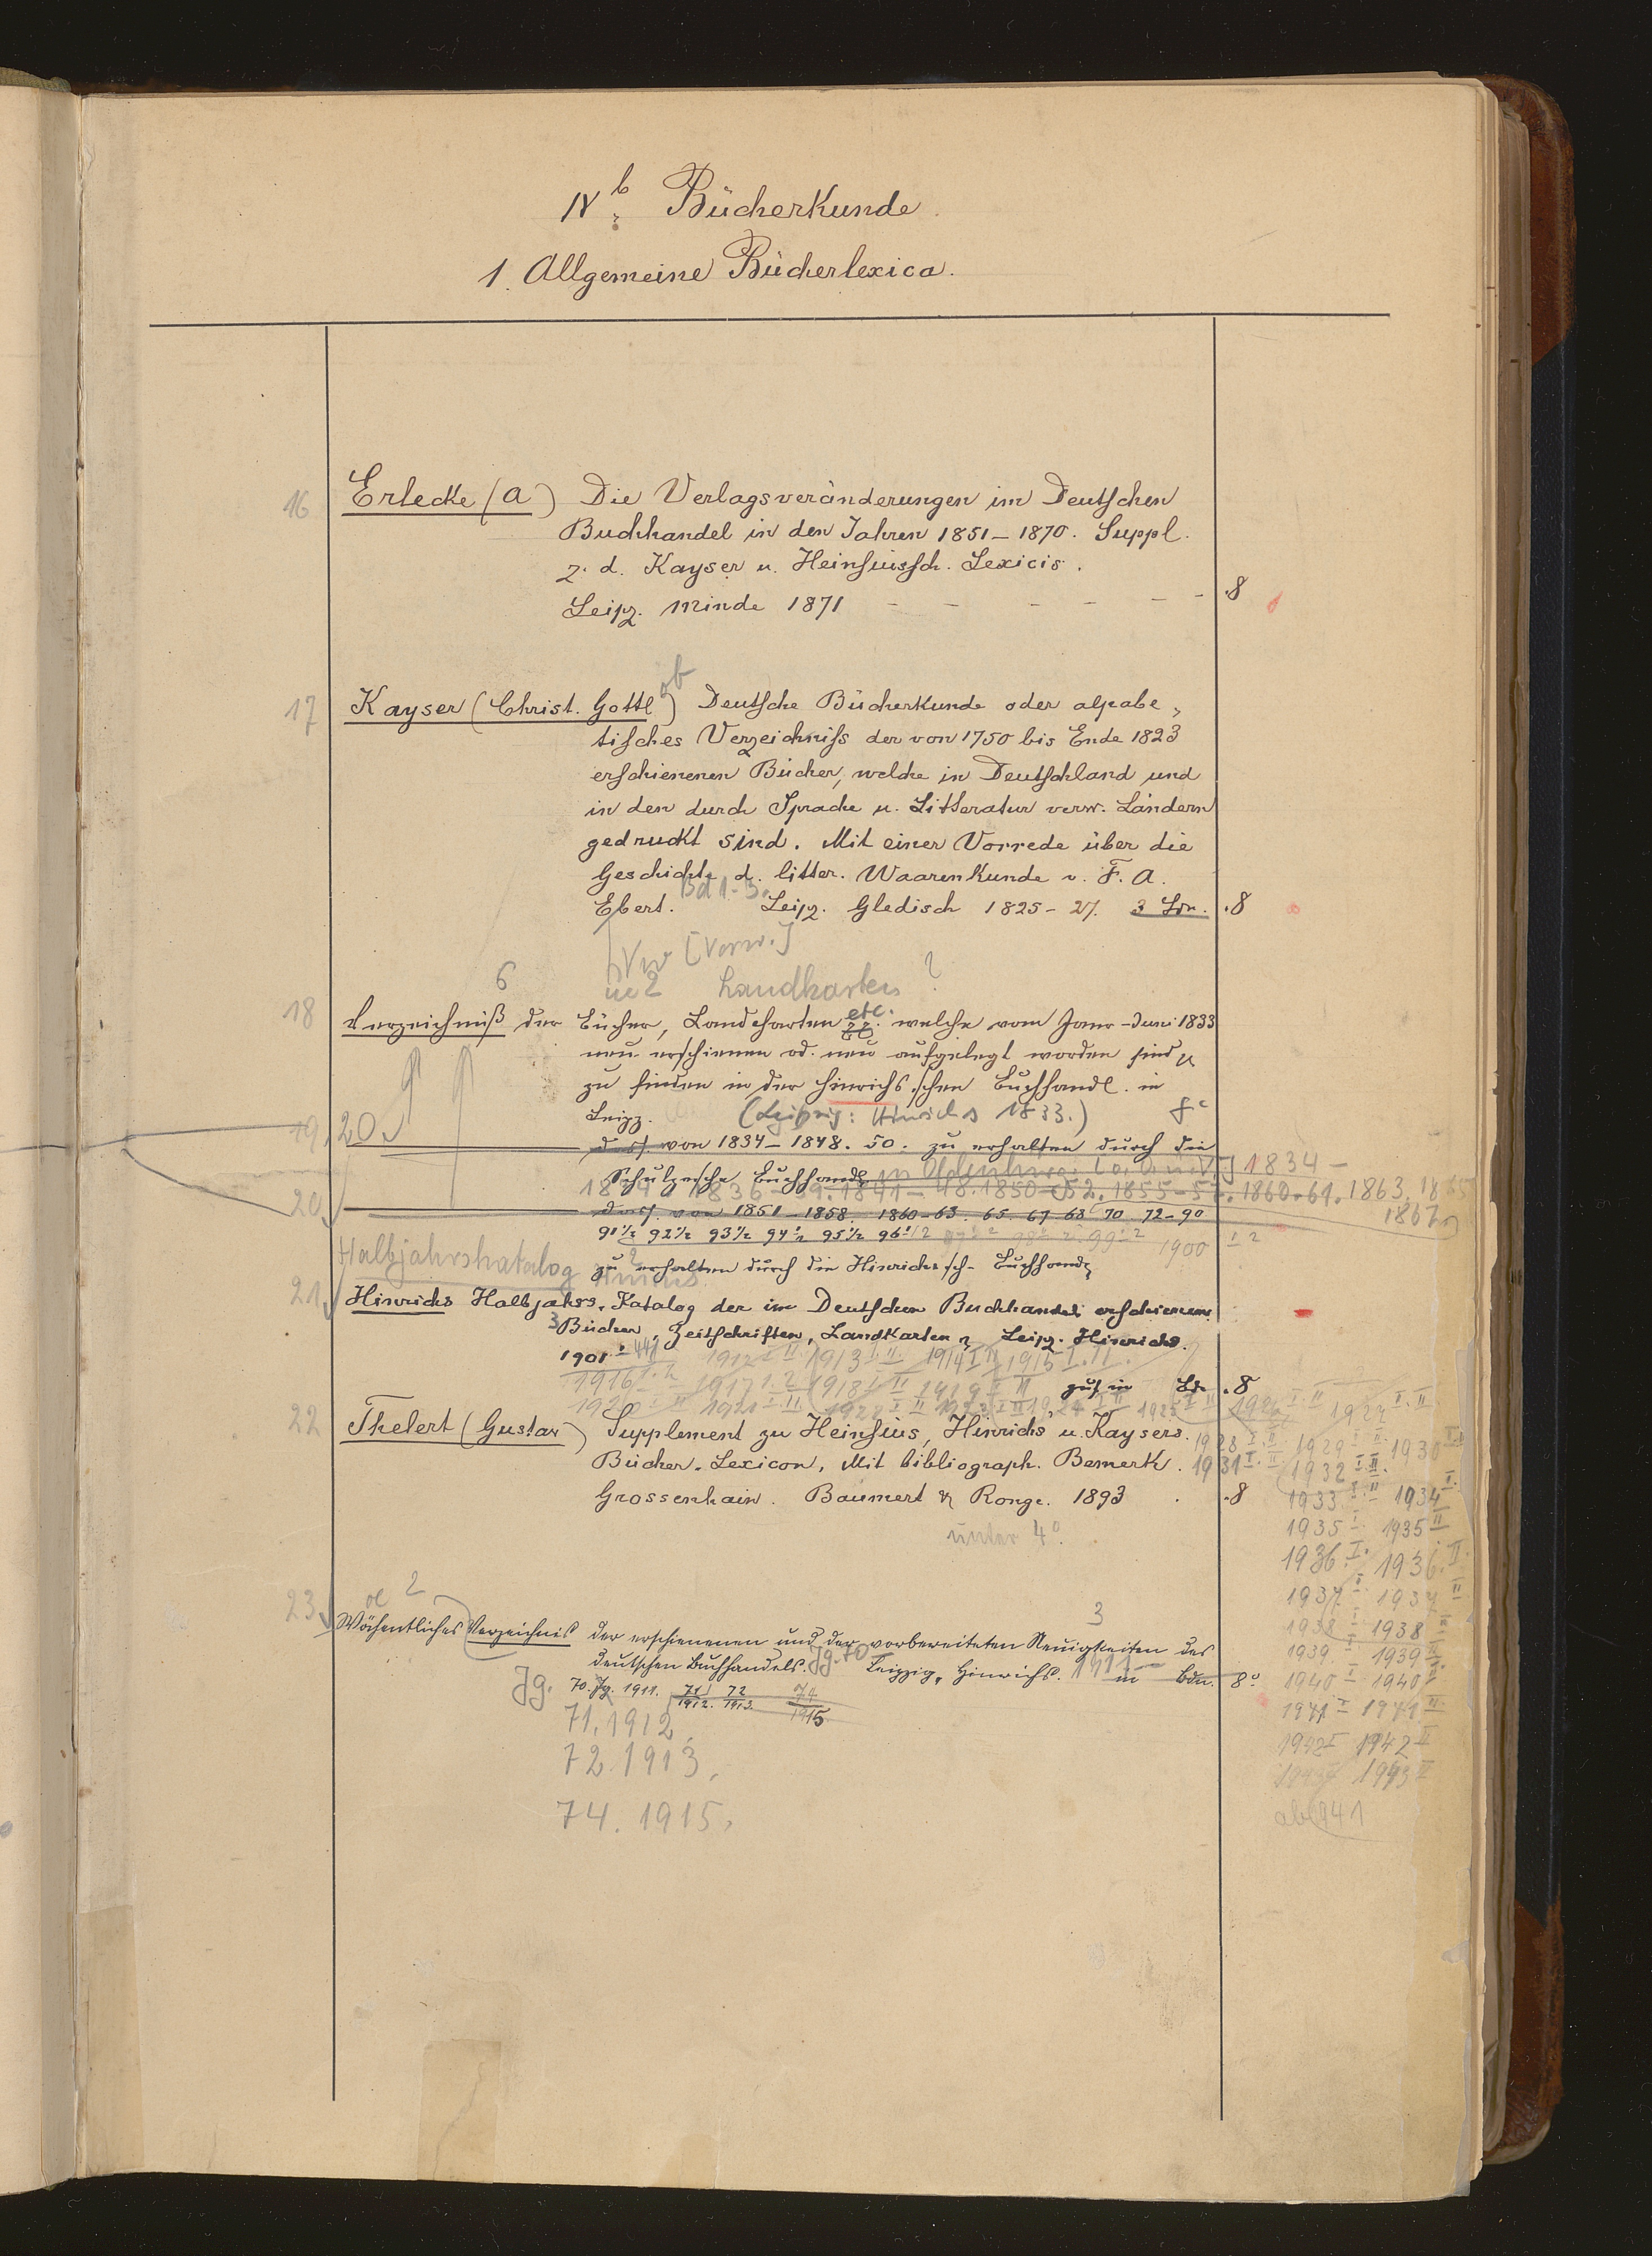 IVb Bücherkunde.
1. Allgemeine Bücherlexica.
16 Erlecke (A) Die Verlagsveränderungen im Deutschen
Buchhandel in den Jahren 1851–1870. Suppl.
z. d. Kayser u. Heinsiussch. Lexicis.
Leipz. Minde 1871 - - - - - - .8
17 Kayser (Christ. Gottlob) Deutsche Bücherkunde oder alpabe„
tisches Verzeichniss der von 1750 bis Ende 1823
erschienenen Bücher, welche in Deutschland und
in den durch Sprache u. Litteratur verw. Ländern
gedruckt sind. Mit einer Vorrede über die
Geschichte d. litter. Waarenkunde v. F. A.
Ebert. Bd 1-3. Leipz. Gledisch 1825-27. 3 Bdn. .8
Vw [Vorw.]
6 Landkarten ?
18 Verzeichniß der Bücher, Landcharten etc. welche vom Janr-Juni 1833
neu erschienen od. neu aufgelegt worden sind
zu finden in der Hinrichs.schen Buchhandl. in
Leipz. (Leipzig: Hinrichs 1833.)
19, 20
dass. von 1834–1848. 50. zu erhalten durch die
Schulzesche Buchhandl. in 1834–
1836-39. 1841-48. 1850-52. 1855- 1860-61. 1863. 1865
1867
20 dass. von 1851–1858. 1860-63. 65. 67 68 70. 72-90
91½ 92½ 93½ 94½ 95½ 96 1/2 1900 I 2
Halbjahrskatalog
zu erhalten durch die Hinrichs'sch- Buchhandl
21 Hinrichs Halbjahrs-Katalog der im Deutschen Buchhandel erschienenen
3 Bücher, Zeitschriften, Landkarten Leipz. Hinrichs.
1901 1912 I II. 1913 I. II. 1914 I II 1915 I. II.
1916 1. 2 1917 1. 2 1918 I II 1919 I II zus in Bdn .8
1920 I II 1921 I. II 1922 I II 1923 I II 1924 I II 1925 I II 1926 I. II 1927 I. II.
22 Thelert (Gustav) Supplement zu Heinsius, Hinrichs u. Kaysers. 1928 I. II 1929 I II 1930
Bücher-Lexicon, Mit bibliograph. Bemerk. 1931 I. II 1932 I. II.
Grossenhain. Baumert & Ronge. 1893 . .8
1933 I II 1934
unter 4°.
1935 I. 1935 II
1936. I. 1936. II.
1937 I. 1937 II
1938 I 1938 II
1939. I 1939 II.
1940 I 1940 II
1941 I 1941 II
1942 I 1942 II
1943 II
ab 1941
23 Wöchentliches Verzeichnis der erschienenen und der vorbereiteten Neuigkeiten des
deutschen Buchhandels. Jg. 70 Leipzig, Hinrichs. 1911– in Bdn. 8°
Jg. 70. Jg. 1911. 71/1912. 72/1913. 74/1915
71, 1912,
72. 1913,
74. 1915,